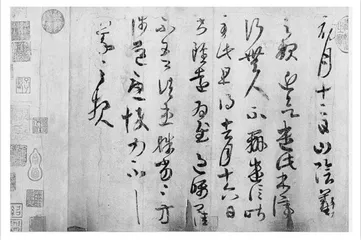 初月十二日山陰羲
之報近欲遣此書停
行無人不辦遣信昨
至此旦得去月十六日
書雖遠為慰過囑卿佳
不吾諸患殊劣殊劣方
涉道憂悴力不具
羲之報